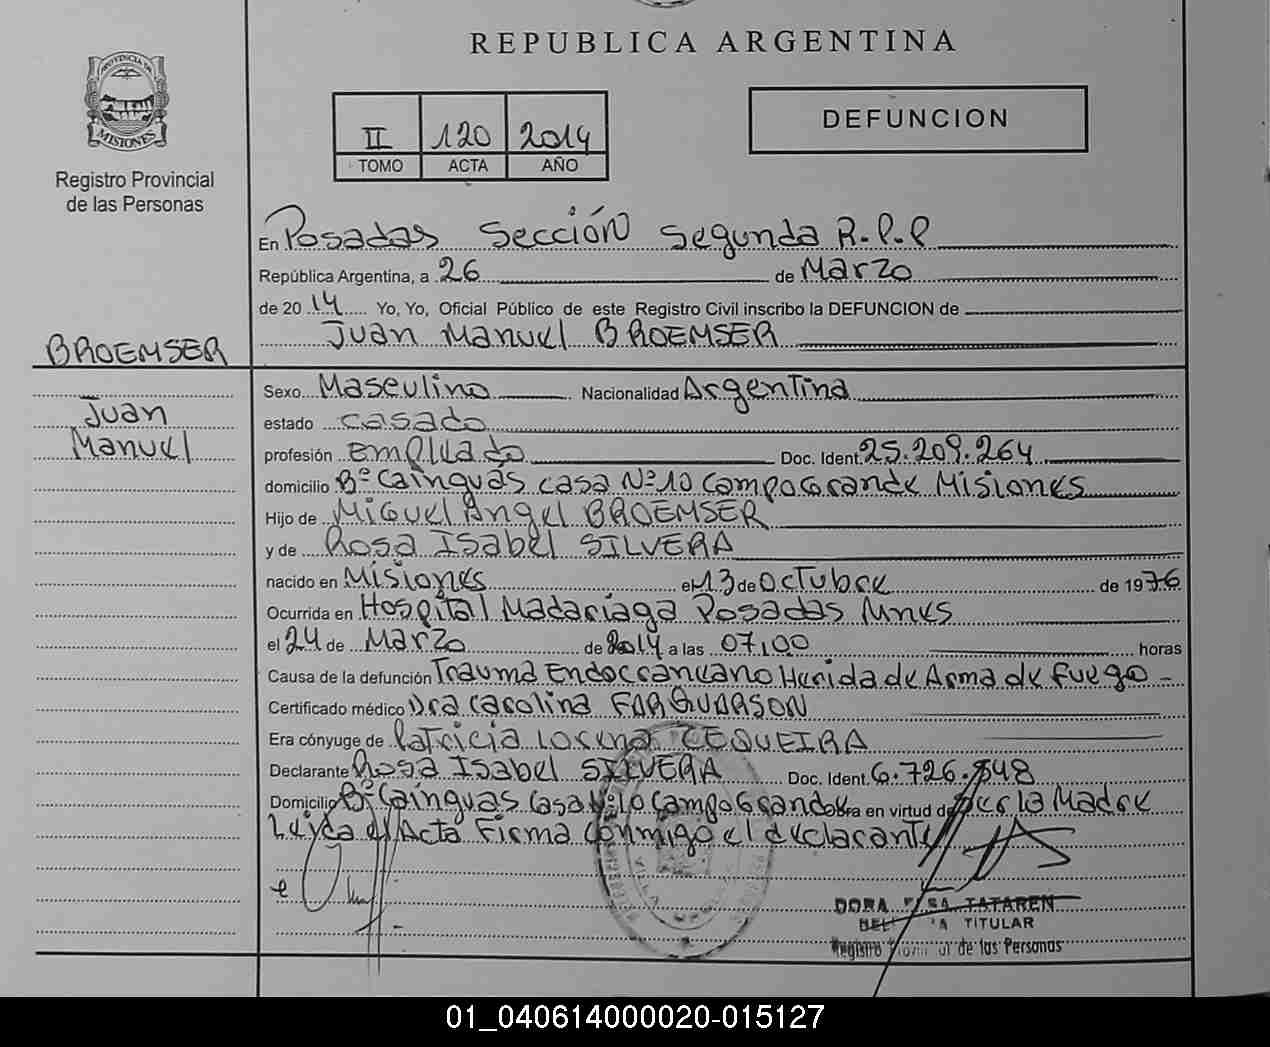 REPUBLICA ARGENTINA
PROVINCIA DE
MISIONES
Registro Provincial
de las Personas
II 120 2014
TOMO ACTA AÑO
DEFUNCION
En Posadas Sección Segunda R.P.P
República Argentina, a 26 de Marzo
de 2014 Yo, Yo, Oficial Público de este Registro Civil inscribo la DEFUNCION de
Juan Manuel BROEMSER
BROEMSER
Juan
Manuel
Sexo Masculino Nacionalidad Argentina
estado casado
profesión Empleado Doc. Ident. 25.209.264
domicilio Bº Cainguás casa Nº 10 Campo Grande Misiones
Hijo de Miguel Angel BROEMSER
y de Rosa Isabel SILVERA
nacido en Misiones el 13 de Octubre de 1976
Ocurrida en Hospital Madariaga Posadas Mnes
el 24 de Marzo de 2014 a las 07,00 horas
Causa de la defunción Trauma Endocraneano Herida de Arma de fuego -
Certificado médico Dra Carolina FARQUARSON
Era cónyuge de Patricia Lorena CEQUEIRA
Declarante Rosa Isabel SILVERA Doc. Ident. 6.726.848
Domicilio Bº Cainguas Casa Nº 10 Campo Grande Obra en virtud de ser la Madre
Leida el Acta Firma conmigo el declarante
DORA TATAREN
TITULAR
Registro Provincial de las Personas
01_040614000020-015127